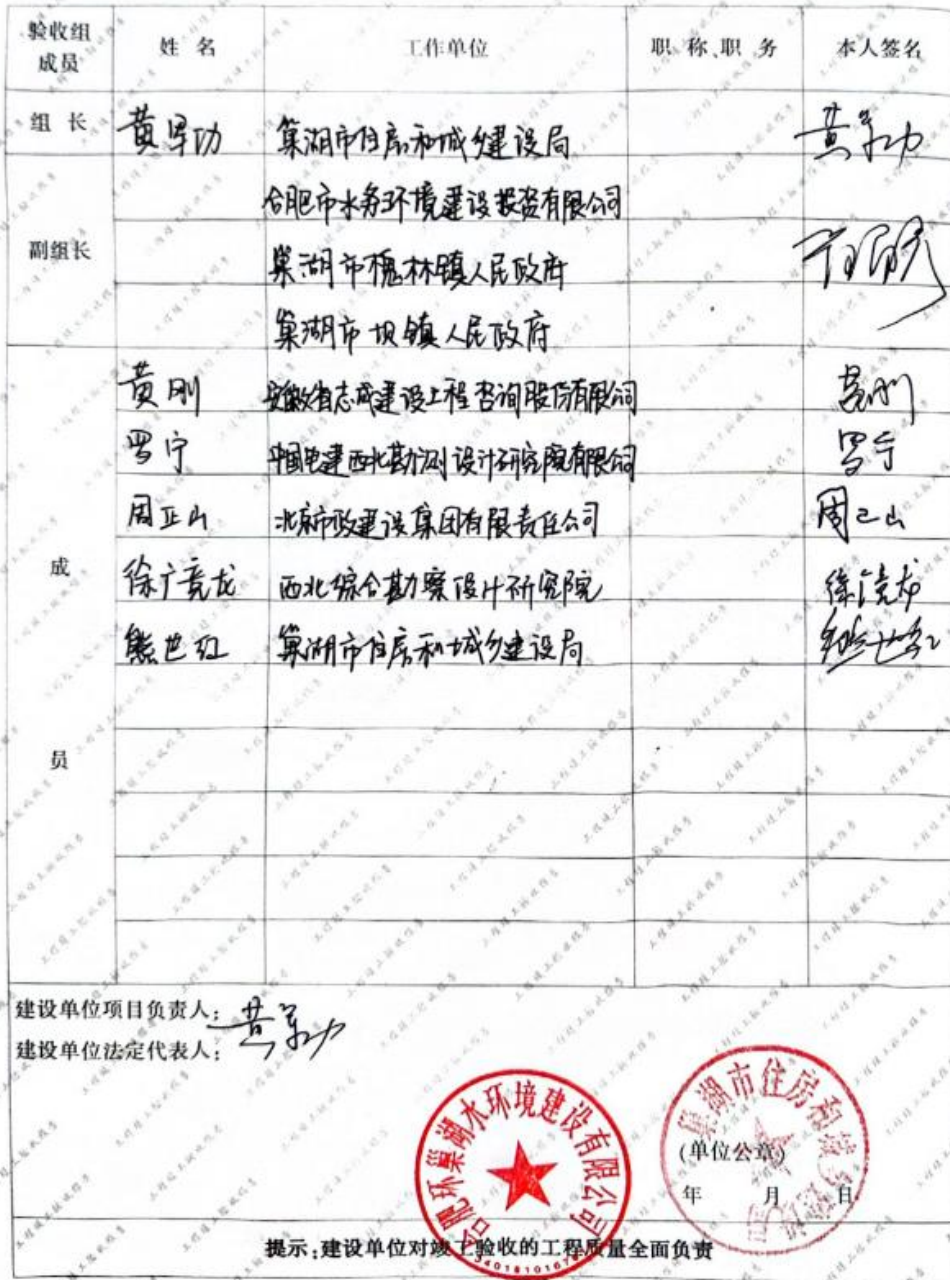 验收组成员 姓 名 工作单位 职 称、职 务 本人签名
组 长 黄军功 巢湖市住房和城乡建设局 黄军功
副组长 合肥市水务环境建设投资有限公司
巢湖市槐林镇人民政府
巢湖市坝镇人民政府
成员 黄刚 安徽省志成建设工程咨询股份有限公司 黄刚
罗宁 中国电建西北勘测设计研究院有限公司 罗宁
周正山 北京市政建设集团有限责任公司 周正山
徐广竟龙 西北综合勘察设计研究院
熊世红 巢湖市住房和城乡建设局 熊世红
建设单位项目负责人: 黄军功
建设单位法定代表人:
合肥环巢湖水环境建设有限公司
巢湖市住房和城乡建设局
(单位公章)
年 月 日
提示:建设单位对竣工验收的工程质量全面负责